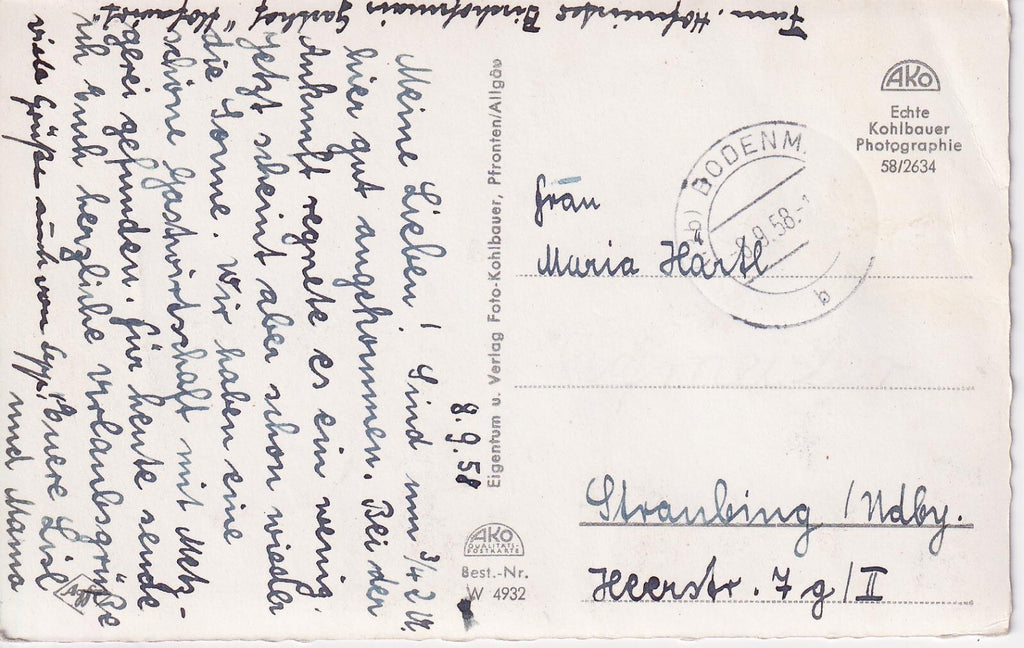 8.9.58
Meine Lieben! Sind um 3/4 2 U.
hier gut angekommen. Bei der
Ankunft regnete es ein wenig.
jetzt scheint aber schon wieder
die Sonne. Wir haben eine
schöne Gastwirtschaft mit Metz-
gerei gefunden. Für heute sende
ich Euch herzliche Urlaubsgrüße
Euere Lisl
und Mama
viele Grüße auch von Sepp!
Fam. Hofmeister Bischofsmais Gasthof "Hofwirt"
Eigentum u. Verlag Foto-Kohlbauer, Pfronten/Allgäu
AKO
QUALITÄTS-
POSTKARTE
Best.-Nr.
W 4932
Agfa
AKO
Echte
Kohlbauer
Photographie
58/2634
BODENM.
8.9.58.-1
b
Frau
Maria Härtl
Straubing /Ndby.
Heerstr. 7 g/II